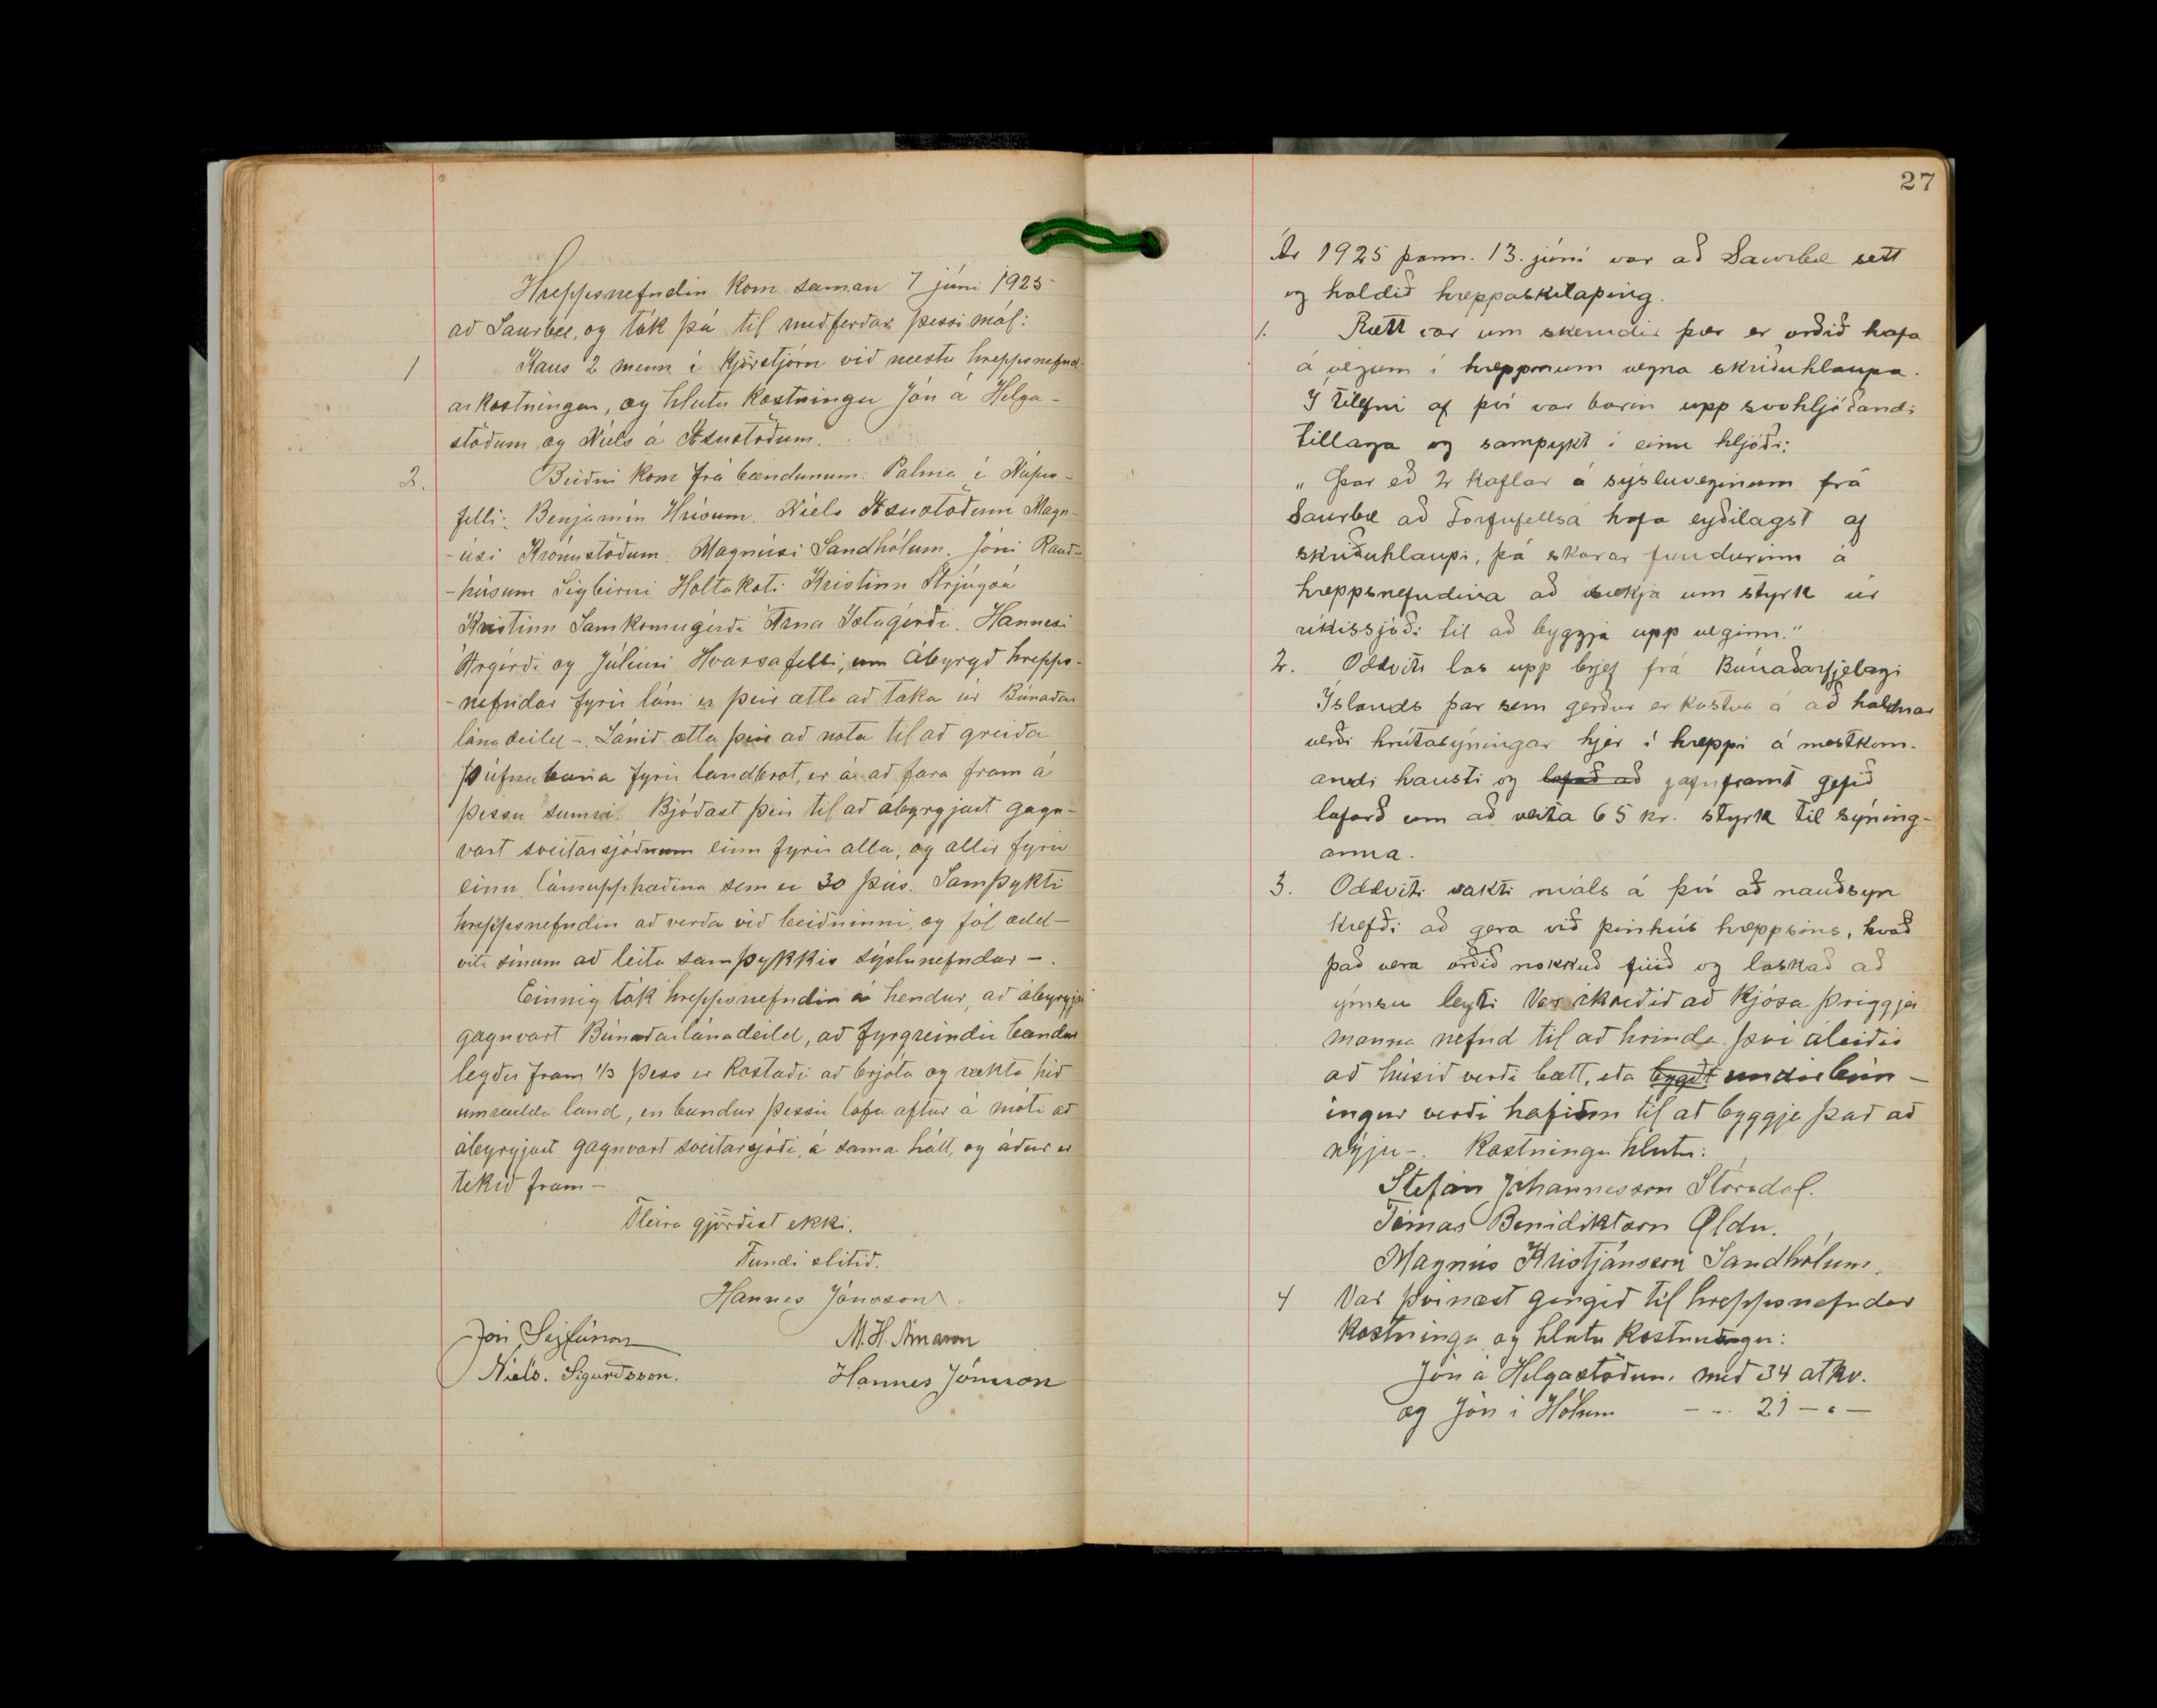 Hreppsnefndin kom saman 7 júní 1925
að Saurbæ, og tók þá til meðferðar þessi mál:
1 Kaus 2 menn í kjörstjórn við næstu hreppsnefnd-
arkostningar, og hlutu kostningu Jón á Helga-
stöðum og Níels á Æsustöðum.
2. Beiðni kom frá bændunum: Pálma í Núpu-
felli: Benjamín Hrísum. Níels Æsustöðum Magn-
-úsi Krónustöðum. Magnúsi Sandhólum. Jóni Rauð-
-húsum Sigbirni Holtakoti Kristinn Strjúgsá
Kristinn Samkomugerði Árna Ystagerði. Hannesi
Árgerði og Júlíusi Hvassafelli, um ábyrgð hrepps-
-nefndar fyrir láni er þeir ætla að taka úr Búnaðar
lánadeild -. Lánið ætla þeir að nota til að greiða
Þúfnabana fyrir landbrot, er á að fara fram á
þessu sumri. Bjóðast þeir til að ábyrgjast gagn-
vart sveitarsjóðnum einn fyrir alla, og allir fyrir
einn, lánsupphæðina sem er 30 þús. Samþykti
hreppsnefndin að verða við beiðninni, og fól odd-
vita sínum að leita samþykkis sýslunefndar -.
Einnig tók hreppsnefndin á hendur, að ábyrgja
gagnvart Búnaðarlánadeild, að fyrgreindir bændur
legðu fram 1/3 þess er kostaði að brjóta og rækta hið
umrædda land, en bændur þessir lofa aftur á móti að
ábyrgjast gagnvart sveitarsjóði, á sama hátt, og áður er
tekið fram -
Fleira gjörðist ekki.
Fundi slitið.
Hannes Jónsson
Jón Sigfússon M. H. Árnason
Níels. Sigurðsson. Hannes Jónsson
27
Ár 1925 þann. 13. júní var að Saurbæ sett
og haldið hreppaskilaþing.
1. Rætt var um skemdir þær er orðið hafa
á vegum í hreppnum vegna skriðuhlaupa.
Í tilefni af því var borin upp svohljóðandi
tillaga og samþykt í einu hljóði:
„ Þar eð 2 kaflar á sýsluveginum frá
Saurbæ að Torfufellsá hafa eyðilagst af
skriðuhlaupi, þá skorar fundurinn á
hreppsnefndina að sækja um styrk úr
ríkissjóði til að byggja upp veginn."
2. Oddviti las upp brjef frá Búnaðarfjelagi
Íslands þar sem gerður er kostur á að haldnar
verði hrútasýningar hjer í hreppi á næstkom-
andi hausti og lofað að jafnframt gefið
loforð um að veita 65 kr. styrk til sýning-
anna.
3. Oddviti vakti máls á því að nauðsyn
krefði að gera við þinhús hreppsins, kvað
það vera orðið nokkuð fúið og laskað að
ýmsu leyti Var ákveðið að kjósa þriggja
manna nefnd til að hrinda því áleiðis
að húsið verði bætt, eða bygðt undirbún-
ingur verði hafinn til að byggja það að
nýju -. Kostningu hlutu:
Stefán Jóhannesson Stóradal.
Tómas Benidiktsson Öldu.
Magnús Kristjánsson Sandhólum.
4 Var þvínæst gengið til hreppsnefndar
kostninga og hlutu kostningu:
Jón á Helgastöðum. með 34 atkv.
og Jón í Hólum - - 21 - " -